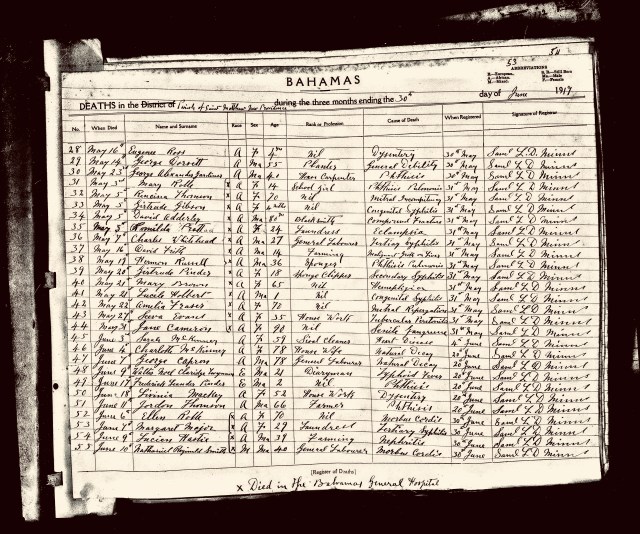 54
53
ABBREVIATIONS
BAHAMAS
E.—European. S. B.—Still Born
A.—African. Ma.—Male
M.—Mixed. F.—Female
DEATHS in the District of Parish of Saint Matthew New Providence during the three months ending the 30th day of June 1917
No. When Died Name and Surname Race Sex Age Rank or Profession Cause of Death When Registered Signature of Registrar
28 May 16 Eugenie Roos A F Nil Dysentery 30th May Saml L. D. Minns
29 May 14 George Dorsett A Ma 55 Planter General Debility 30th May Saml L. D. Minns
30 May 23 George Alexander A Ma 40 Carpenter Phthisis 30th May Saml L. D. Minns
31 May 3 Mary Rolle x A F 14 School girl Phthisis Pulmonis 31st May Saml L. D. Minns
32 May 5 Thomson x A F 70 Nil Mitral Incompetency 31st May Saml L. D. Minns
33 May 5 Gertrude Gibson x A F Nil Congenital Syphilis 31st May Saml L. D. Minns
34 May 5 David Adderley x A Ma 80 Blacksmith Compound Fracture 31st May Saml L. D. Minns
35 May 3 Romilda Pratt x A F 24 Laundress Eclampsia 31st May Saml L. D. Minns
36 May 7 Charles Whitehead x A Ma 27 General Labourer Tertiary Syphilis 31st May Saml L. D. Minns
37 May 16 David x A Ma 14 Farming 31st May Saml L. D. Minns
38 May 19 Vernon Russell x A Ma 36 Sponger Phthisis Pulmonis 31st May Saml L. D. Minns
39 May 20 Gertrude Pinder x A F 18 Sponge Clipper Secondary Syphilis 31st May Saml L. D. Minns
40 May 21 Mary Brown x A F 65 Nil Hemiplegia 31st May Saml L. D. Minns
41 May 21 Lucile Holbert x A Ma 1 Nil Congenital Syphilis 31st May Saml L. D. Minns
42 May 22 Amelia Fraser x A F 50 Nil Mitral Regurgitation 31st May Saml L. D. Minns
43 May 27 Evans x A F 35 House Work Tubercular Peritonitis 31st May Saml L. D. Minns
44 May 31 Jane Cameron x A F 90 Nil Senile Gangrene 31st May Saml L. D. Minns
45 June 3 Sarah McKinney A F 59 Sisal cleaner Heart Disease 4th June Saml L. D. Minns
46 June 4 Charlotte McKinney A F 78 House Wife Natural Decay 20th June Saml L. D. Minns
47 June 7 George Capron A Ma 78 General Labourer Natural Decay 20th June Saml L. D. Minns
48 June 9 Noel Claridge E Ma 28 Dairyman Typhoid Fever 20th June Saml L. D. Minns
49 June 17 Frederick Pinder E Ma 2 Nil Phthisis 20th June Saml L. D. Minns
50 June 18 Livinia Mackey A F 52 House Work Dysentery 20th June Saml L. D. Minns
51 June 11 Gordon Thomson A Ma 66 Farmer Phthisis 20 June Saml L. D. Minns
52 June 6 Ellen Rolle x A F 70 Nil Morbus Cordis 30th June Saml L. D. Minns
53 June 7 Margaret Major x A F 29 Laundress Tertiary Syphilis 30th June Saml L. D. Minns
54 June 9 Lucien x A Ma 39 Farming Nephritis 30th June Saml L. D. Minns
55 June 10 Nathaniel Reginald Smith x M Ma 40 General Labourer Morbus Cordis 30th June Saml L. D. Minns
[Register of Deaths]
x Died in the Bahamas General Hospital